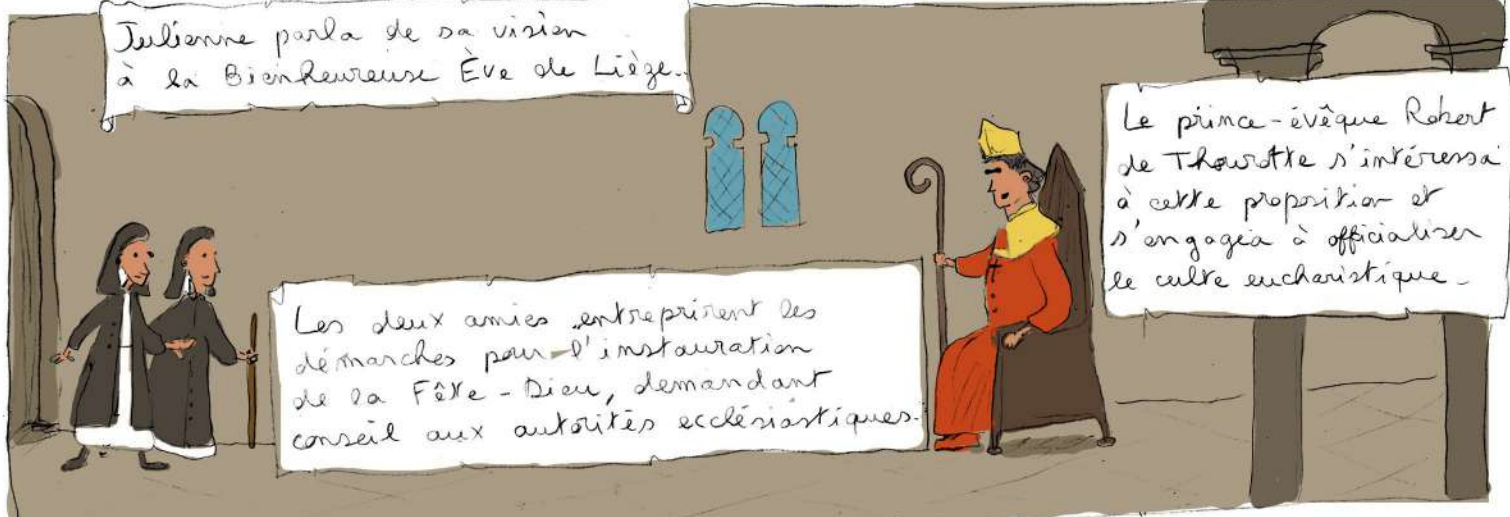 Julienne parla de sa vision
à la Bienheureuse Ève de Liège.
Les deux amies entreprirent les
démarches pour l'instauration
de la Fête-Dieu, demandant
conseil aux autorités ecclésiastiques.
Le prince-évêque Robert
de Thourotte s'intéressa
à cette proposition et
s'engagea à officialiser
le culte eucharistique.